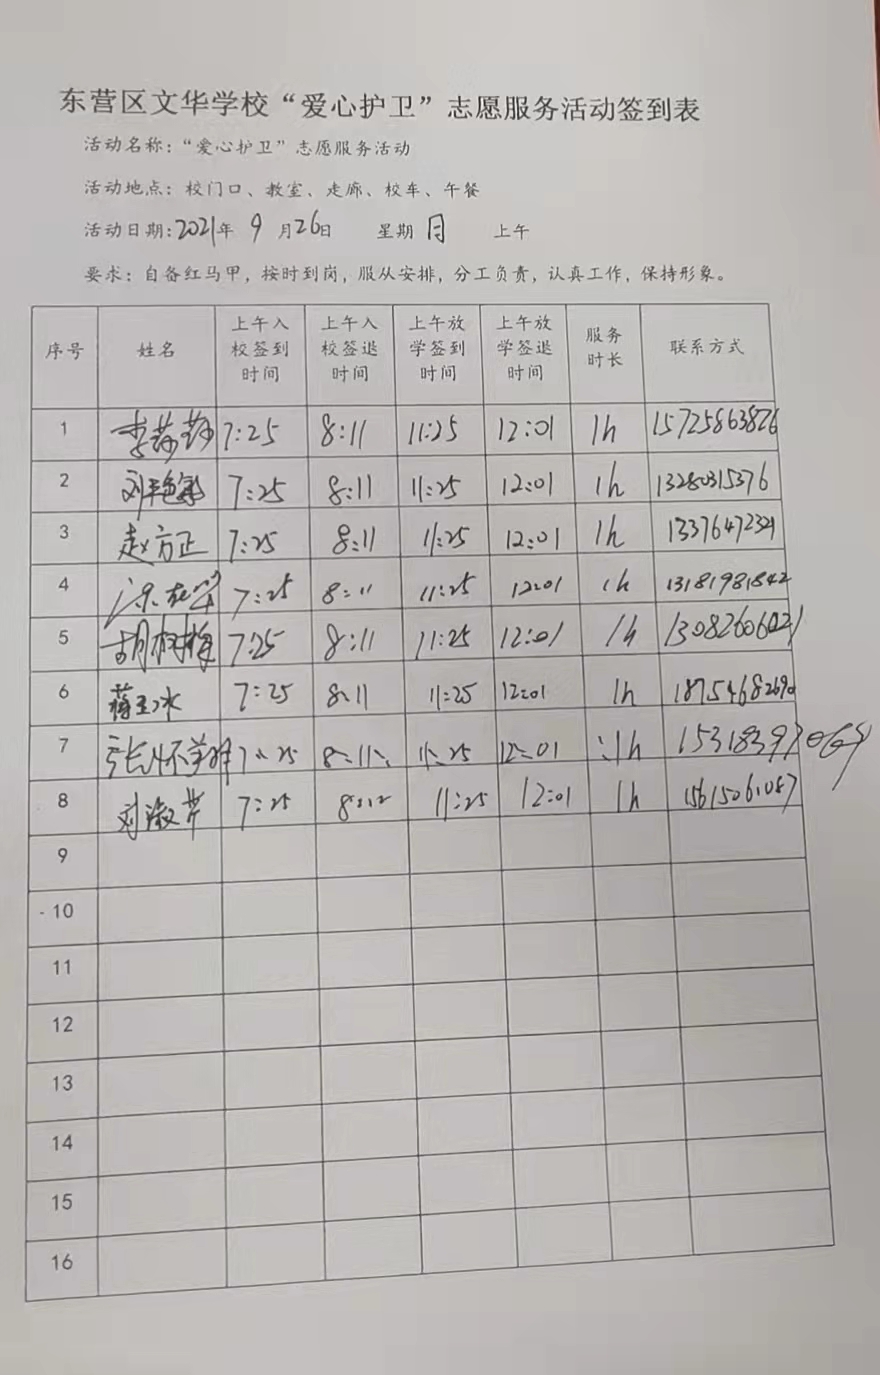 东营区文华学校“爱心护卫”志愿服务活动签到表
活动名称：“爱心护卫”志愿服务活动
活动地点：校门口、教室、走廊、校车、午餐
活动日期：2021年 9 月26日 星期 日 上午
要求：自备红马甲，按时到岗，服从安排，分工负责，认真工作，保持形象。
序号 姓名 上午入校签到时间 上午入校签退时间 上午放学签到时间 上午放学签退时间 服务时长 联系方式
1 7:25 8:11 11:25 12:01 1h 15725863826
2 7:25 8:11 11:25 12:01 1h 13280315376
3 赵方正 7:25 8:11 11:25 12:01 1h
4 7:25 8:11 11:25 12:01 1h 13181981842
5 胡树梅 7:25 8:11 11:25 12:01 1h
6 蒋玉冰 7:25 8:11 11:25 12:01 1h 18754682690
7 7:25 8:11 11:25 12:01 1h
8 刘淑芹 7:25 8:12 11:25 12:01 1h 15615061087
9
10
11
12
13
14
15
16